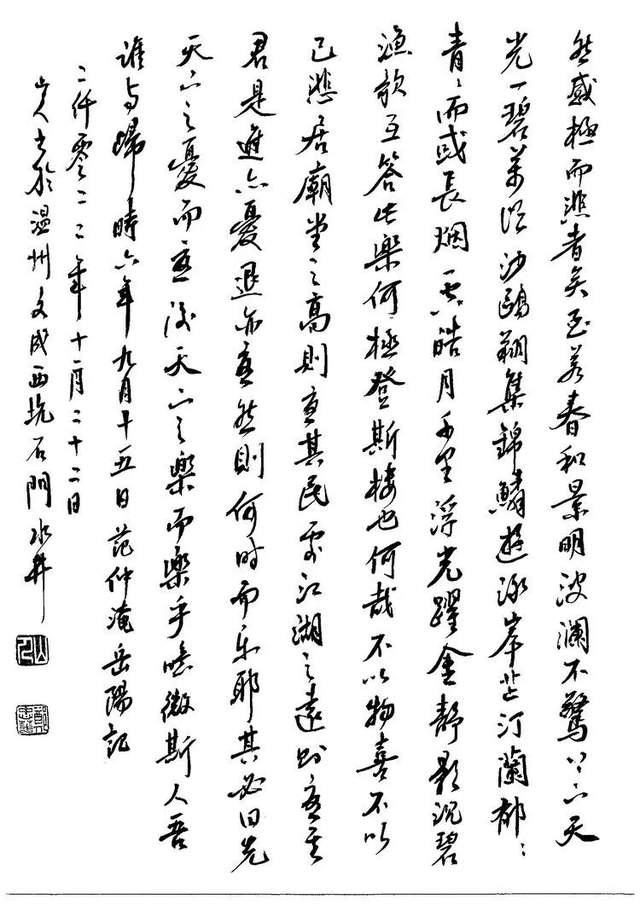 然感極而悲者矣至若春和景明波瀾不驚上下天
光一碧萬頃沙鷗翔集錦鱗遊泳岸芷汀蘭郁:
青:而或長烟一空皓月千里浮光躍金靜影沉碧
漁歌互答此樂何極登斯樓也何哉不以物喜不以
己悲居廟堂之高則憂其民處江湖之遠則憂其
君是進亦憂退亦憂然則何时而乐耶其必曰先
天下之憂而憂後天下之樂而樂乎噫微斯人吾
誰與歸時六年九月十五日范仲淹岳陽記
二仟零二二年十二月二十二日
山人书於温州文成西坑石門水井
山人